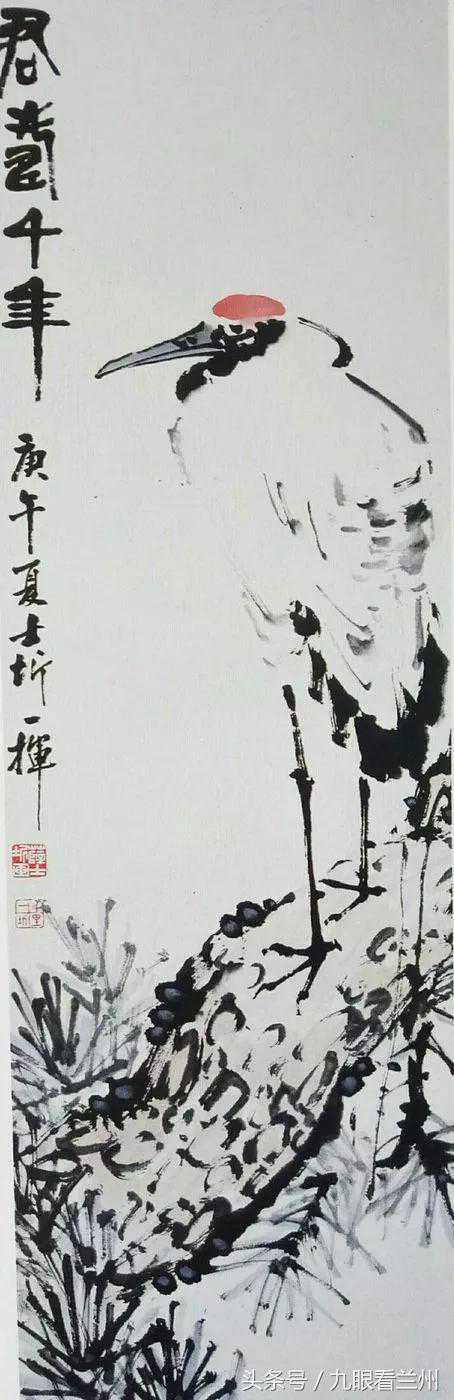 君壽千年
庚午夏士圻一揮
头条号 / 九眼看兰州